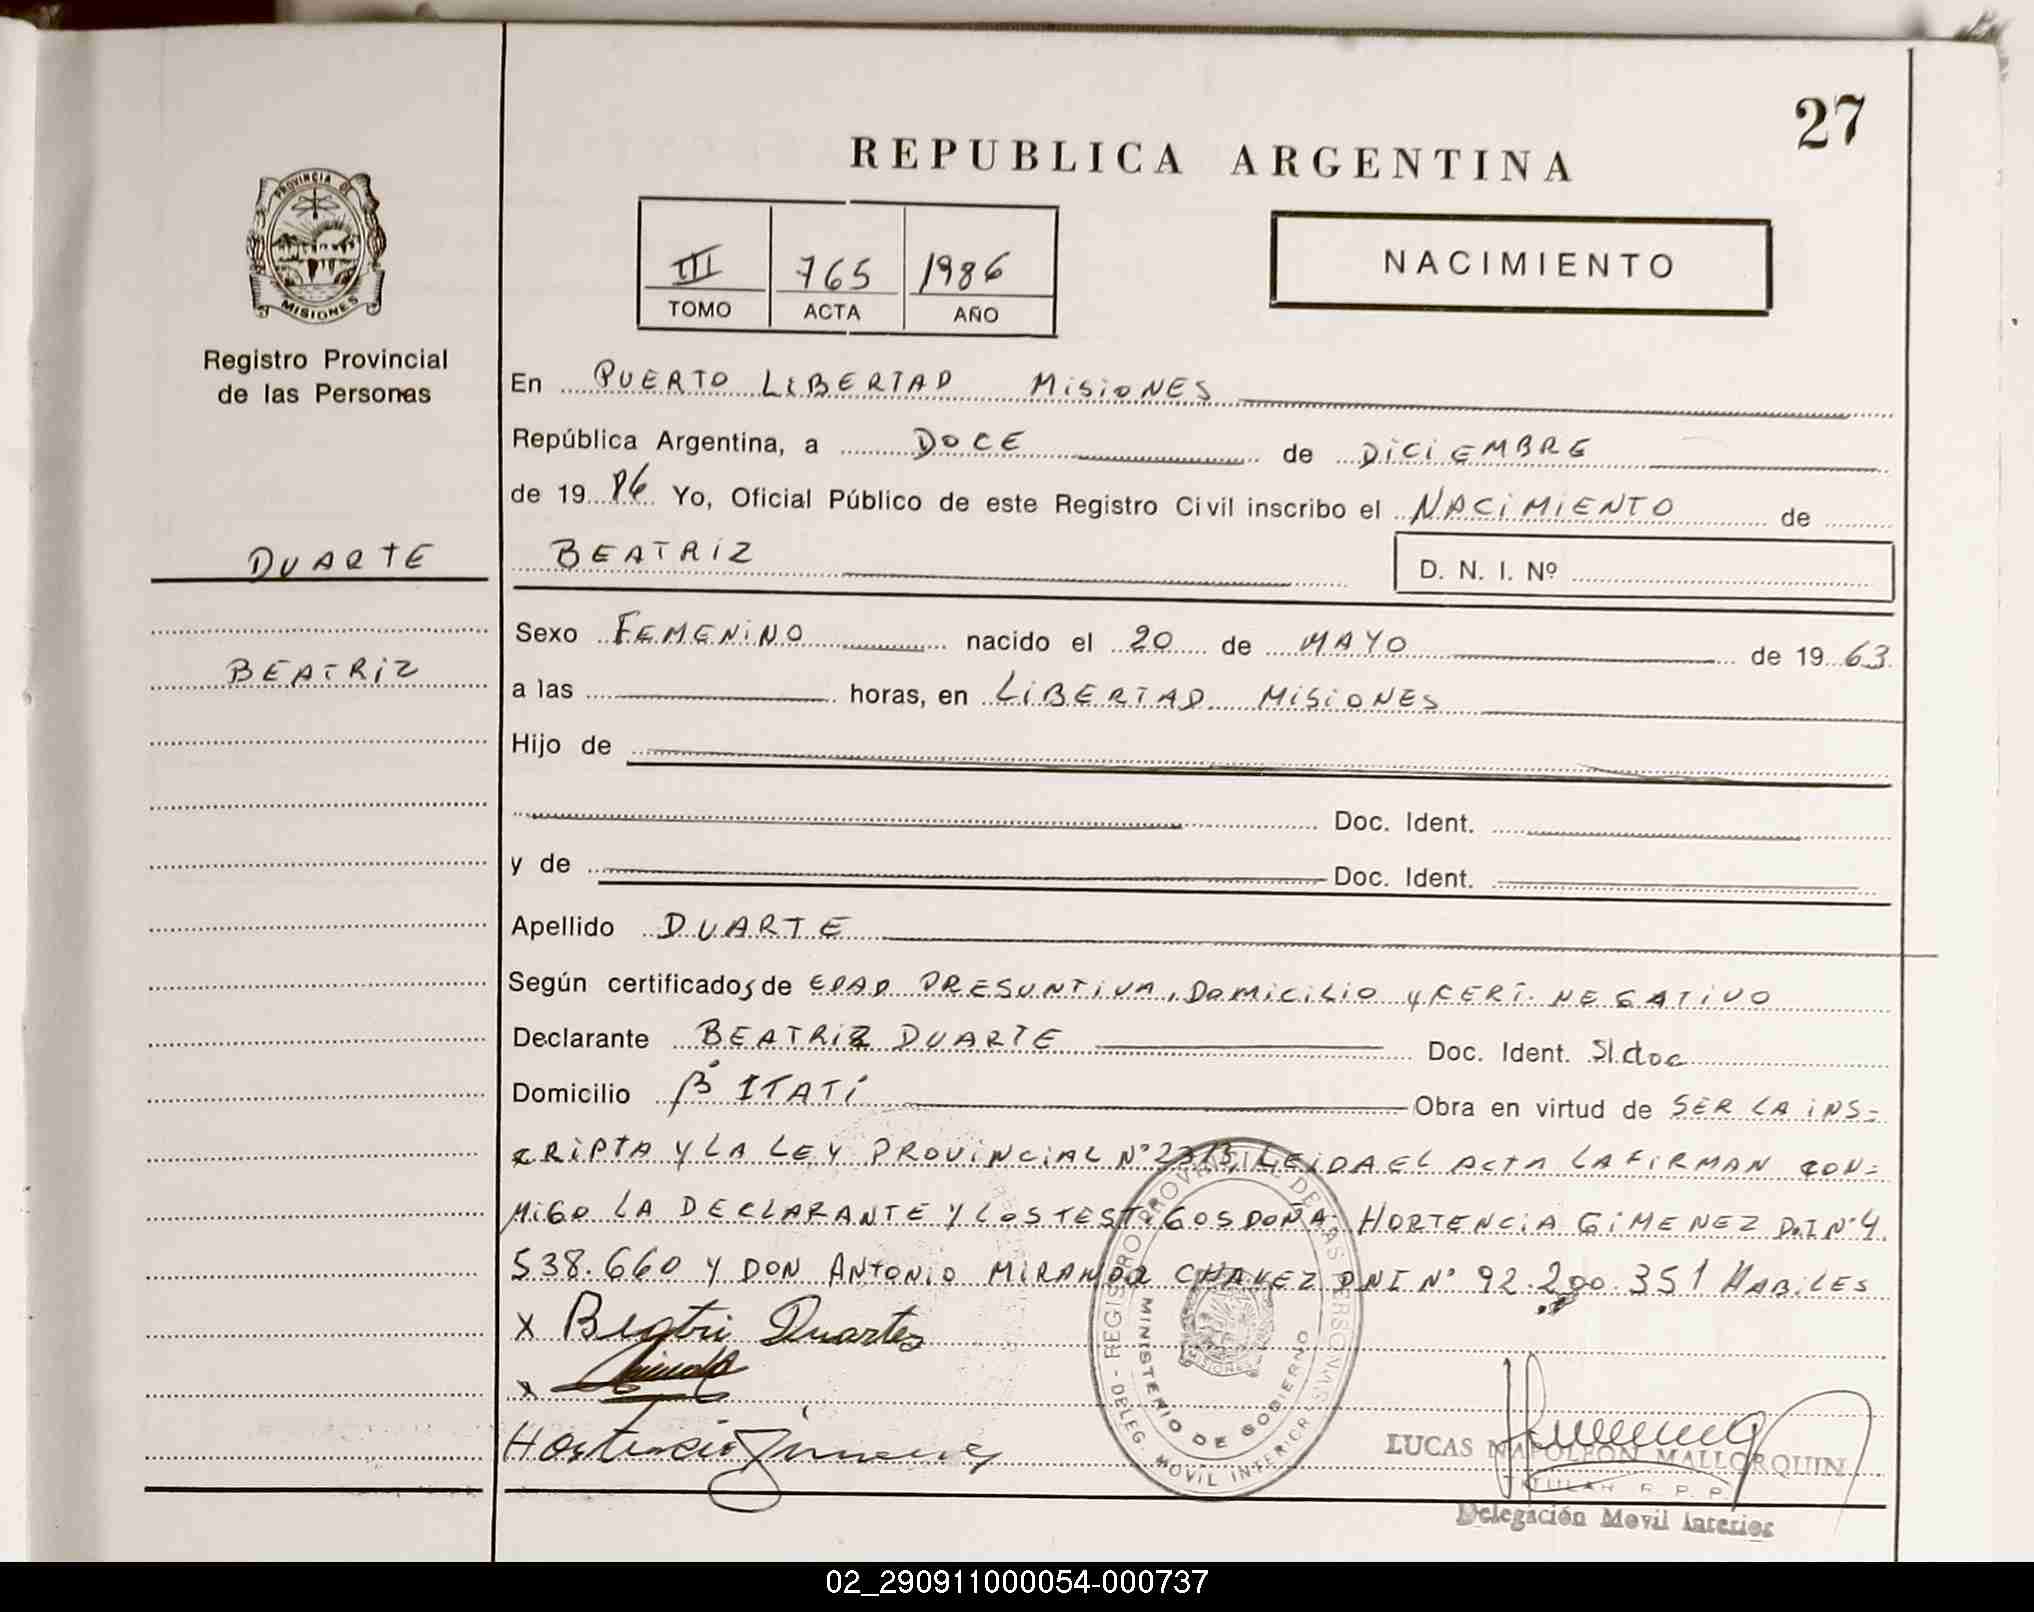 27
REPUBLICA ARGENTINA
PROVINCIA DE
MISIONES
Registro Provincial
de las Personas
III 765 1986
TOMO ACTA AÑO
NACIMIENTO
En PUERTO LIBERTAD MISIONES
República Argentina, a DOCE de DICIEMBRE
de 19 86 Yo, Oficial Público de este Registro Civil inscribo el NACIMIENTO de
DUARTE
BEATRIZ
D. N. I. Nº
Sexo FEMENINO nacido el 20 de MAYO de 19 63
BEATRIZ
a las horas, en LIBERTAD MISIONES
Hijo de
Doc. Ident.
y de Doc. Ident.
Apellido DUARTE
Según certificados de EDAD PRESUNTIVA, DOMICILIO Y CERT. NEGATIVO
Declarante BEATRIZ DUARTE Doc. Ident. S/. doc
Domicilio Bº ITATI Obra en virtud de SER LA INS=
CRIPTA Y LA LEY PROVINCIAL Nº 2313, LEIDA EL ACTA LA FIRMAN CON=
MIGO LA DECLARANTE Y LOS TESTIGOS DOÑA HORTENCIA GIMENEZ D.I Nº 4.
538.660 Y DON ANTONIO MIRANDA CHAVEZ DNI Nº 92.200.351 HABILES
x Beatri Duartes
x
Hortencia Jimenez
REGISTRO PROVINCIAL DE LAS PERSONAS - DELEG. MOVIL INTERIOR -
MINISTERIO DE GOBIERNO
MISIONES
LUCAS NAPOLEON MALLORQUIN
TITULAR R. P. P.
Delegación Movil Interior
02_290911000054-000737